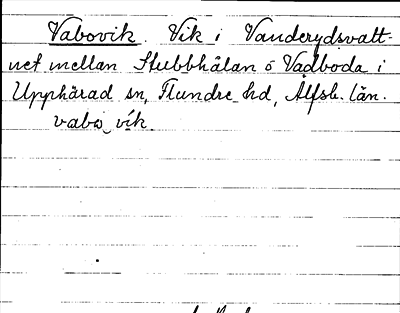 Vabovik. Vik i Vanderydsvatt-
net mellan Stubbhålan o Vadboda i
Upphärad sn, Flundre hd, Älfsb. län.
vabo vik